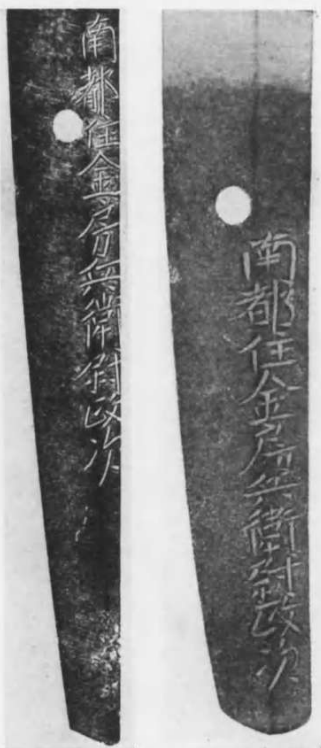 南都住金房兵衛尉政次
南都住金房兵衛尉政次